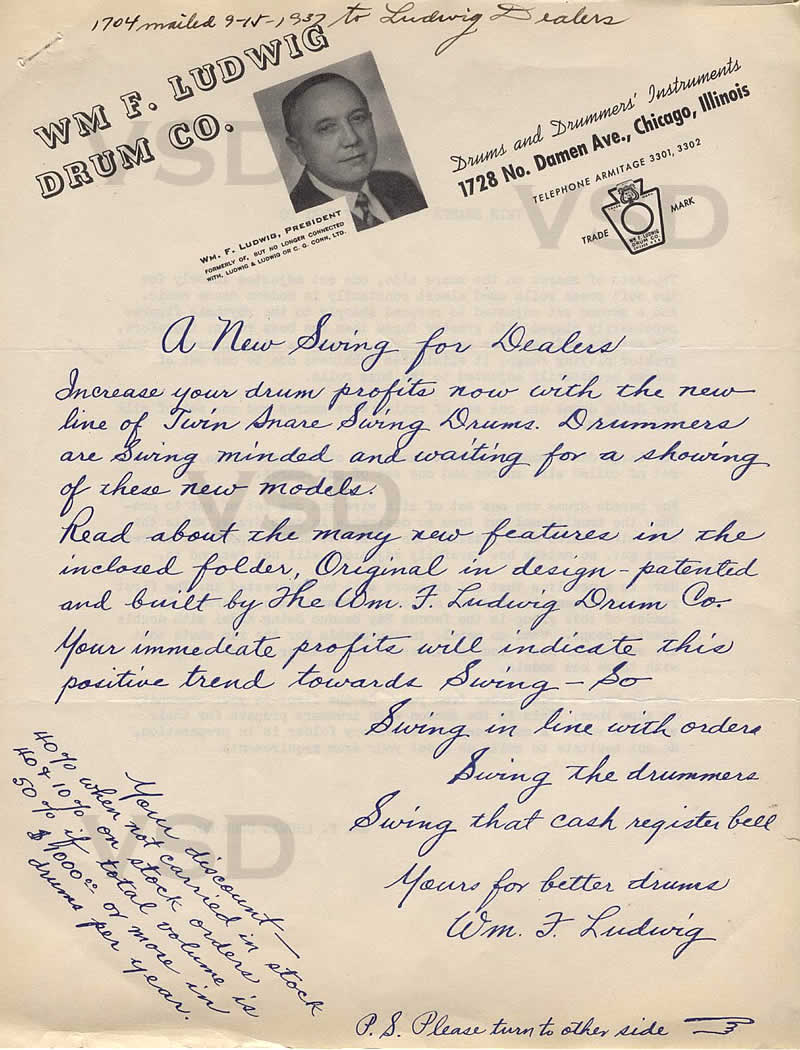 1704 mailed 9-15-1937 to Ludwig Dealers
WM F. LUDWIG
DRUM CO.
WM. F. LUDWIG, PRESIDENT
FORMERLY OF, BUT NO LONGER CONNECTED
WITH, LUDWIG & LUDWIG OR C. G. CONN, LTD.
Drums and Drummers' Instruments
1728 No. Damen Ave., Chicago, Illinois
TELEPHONE ARMITAGE 3301, 3302
TRADE MARK
WM. F. LUDWIG
DRUM CO.
VSD
VSD
A New Swing for Dealers
Increase your drum profits now with the new
line of Twin Snare Swing Drums. Drummers
are Swing minded and waiting for a showing
of these new models.
VSD
Read about the many new features in the
inclosed folder, Original in design - patented
and built by The Wm. F. Ludwig Drum Co.
Your immediate profits will indicate this
positive trend towards Swing - So
Swing in line with orders
Swing the drummers
Swing that cash register bell
Yours for better drums
Wm. F. Ludwig
Your discount —
40% when not carried in stock
40 & 10% on stock orders
50% if total volume is
$1000.00 or more in
drums per year.
VSD
P.S. Please turn to other side